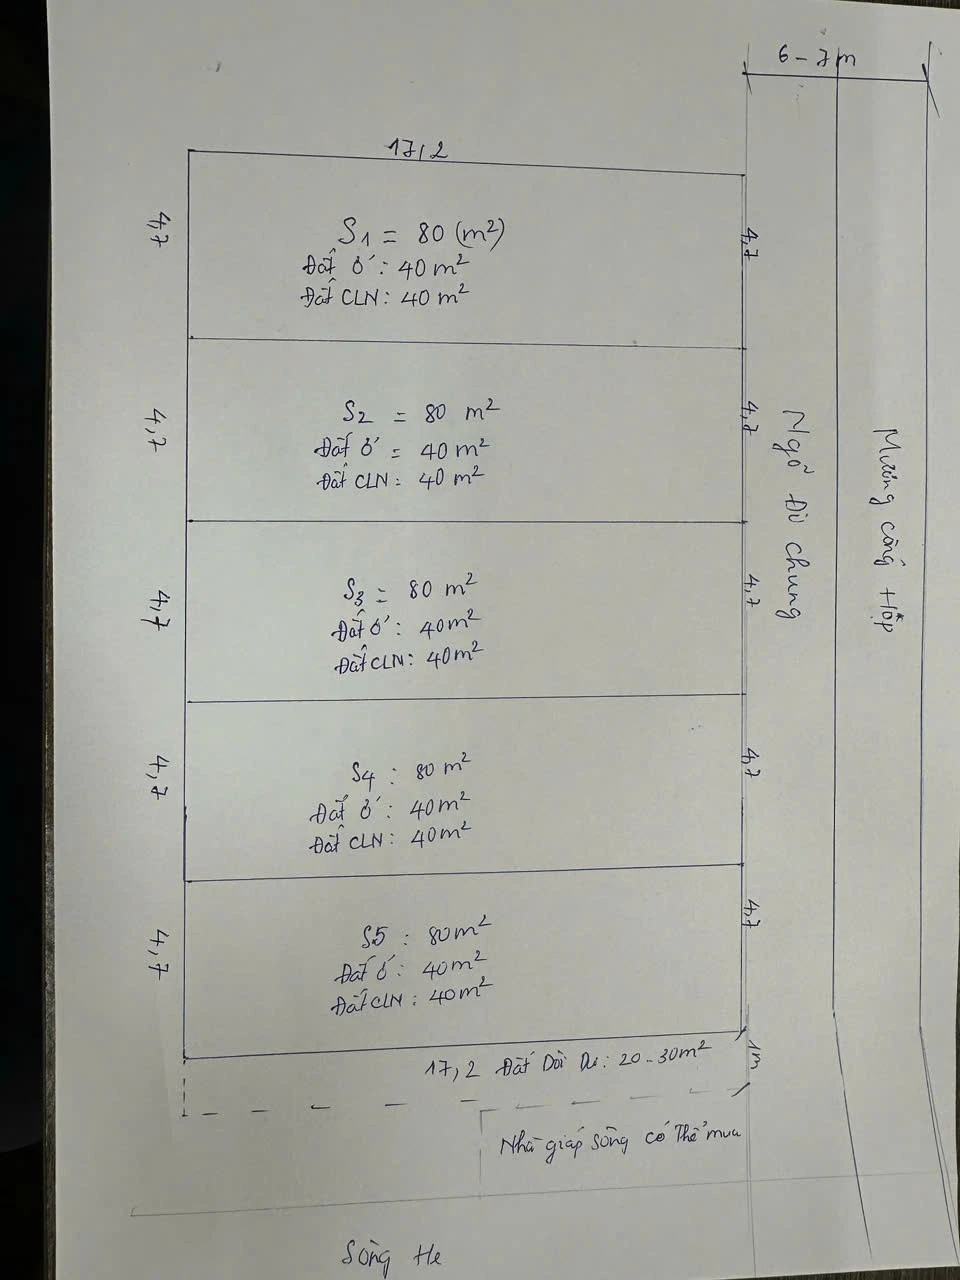 6 - 7m
17,2
4,7
4,7
S1 = 80 (m²)
Đất ở: 40 m²
Đất CLN: 40 m²
4,7
4,7
S2 = 80 m²
Đất ở = 40 m²
Đất CLN = 40 m²
Ngõ Đi chung
Mương cống Hộp
4,7
4,7
S3 = 80 m²
Đất ở: 40m²
Đất CLN: 40m²
4,7
4,7
S4 : 80 m²
Đất ở: 40m²
Đất CLN: 40m²
4,7
4,7
S5 : 80m²
Đất ở: 40m²
Đất CLN: 40m²
17,2 Đất Dôi Dư: 20 - 30m²
1m
Nhà giáp sông có thể mua
Sông He